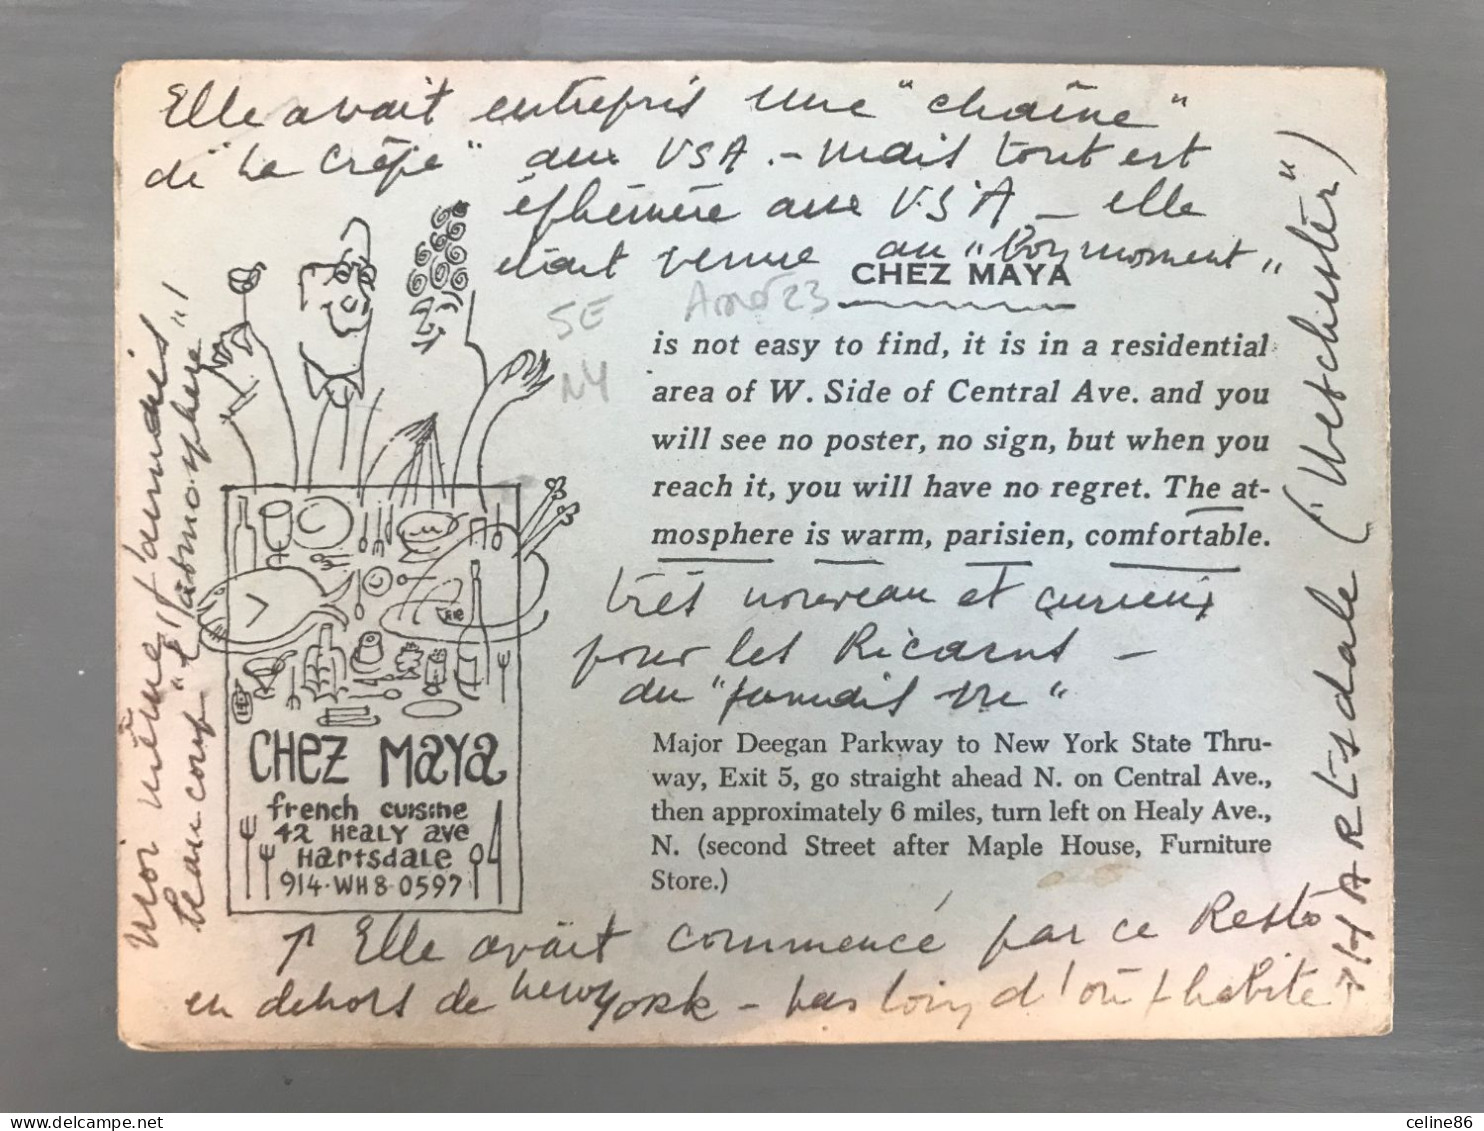 Elle avait entrepris une "chaîne"
de "La Crêpe" aux USA. - mais tout est
éphémère aux USA - elle
était venue au "Bon moment"
SE
NY
CHEZ MAYA
is not easy to find, it is in a residential
area of W. Side of Central Ave. and you
will see no poster, no sign, but when you
reach it, you will have no regret. The at-
mosphere is warm, parisien, comfortable.
très nouveau et curieux
pour les Ricains -
du "jamais vu"
Major Deegan Parkway to New York State Thru-
way, Exit 5, go straight ahead N. on Central Ave.,
then approximately 6 miles, turn left on Healy Ave.,
N. (second Street after Maple House, Furniture
Store.)
CHEZ MAYA
french cuisine
42 HEALY AVE
HARTSDALE
914-WH 8-0597
↑ Elle avait commencé par ce Resto
en dehors de New York - pas loin d'où j'habite
→ HARTSDALE (Westchester)
Moi même j'aimais
beaucoup "l'atmosphère"!
celine86
delcampe.net